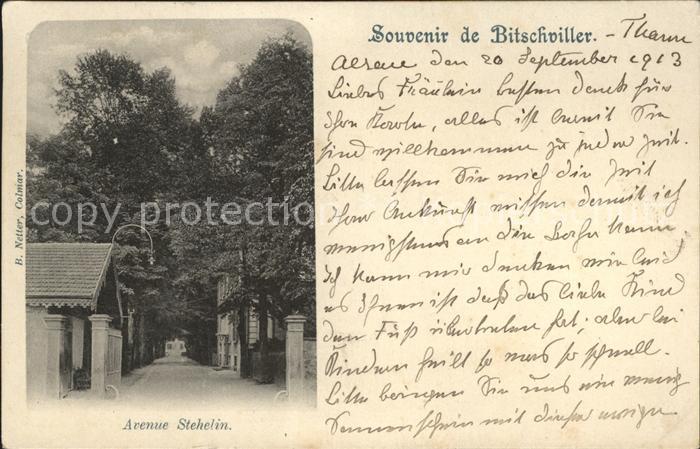 Souvenir de Bitschviller. - Thann
Alsace den 20 September 1913
Liebes Fräulein besten Dank für
Ihre Karte, alles ist bereit Sie
sind willkommen zu jeder Zeit.
Bitte lassen Sie mich die Zeit
Ihrer Ankunft wissen damit ich
wenigstens an die Bahn kann
Ich kann mir denken wie leid
es Ihnen ist daß das liebe Kind
den Fuß übertreten hat, aber bei
Kindern heilt so was so schnell.
Bitte bringen Sie uns ein wenig
Sonnenschein mit dieser
B. Netter, Colmar.
Avenue Stehelin.
copy protected